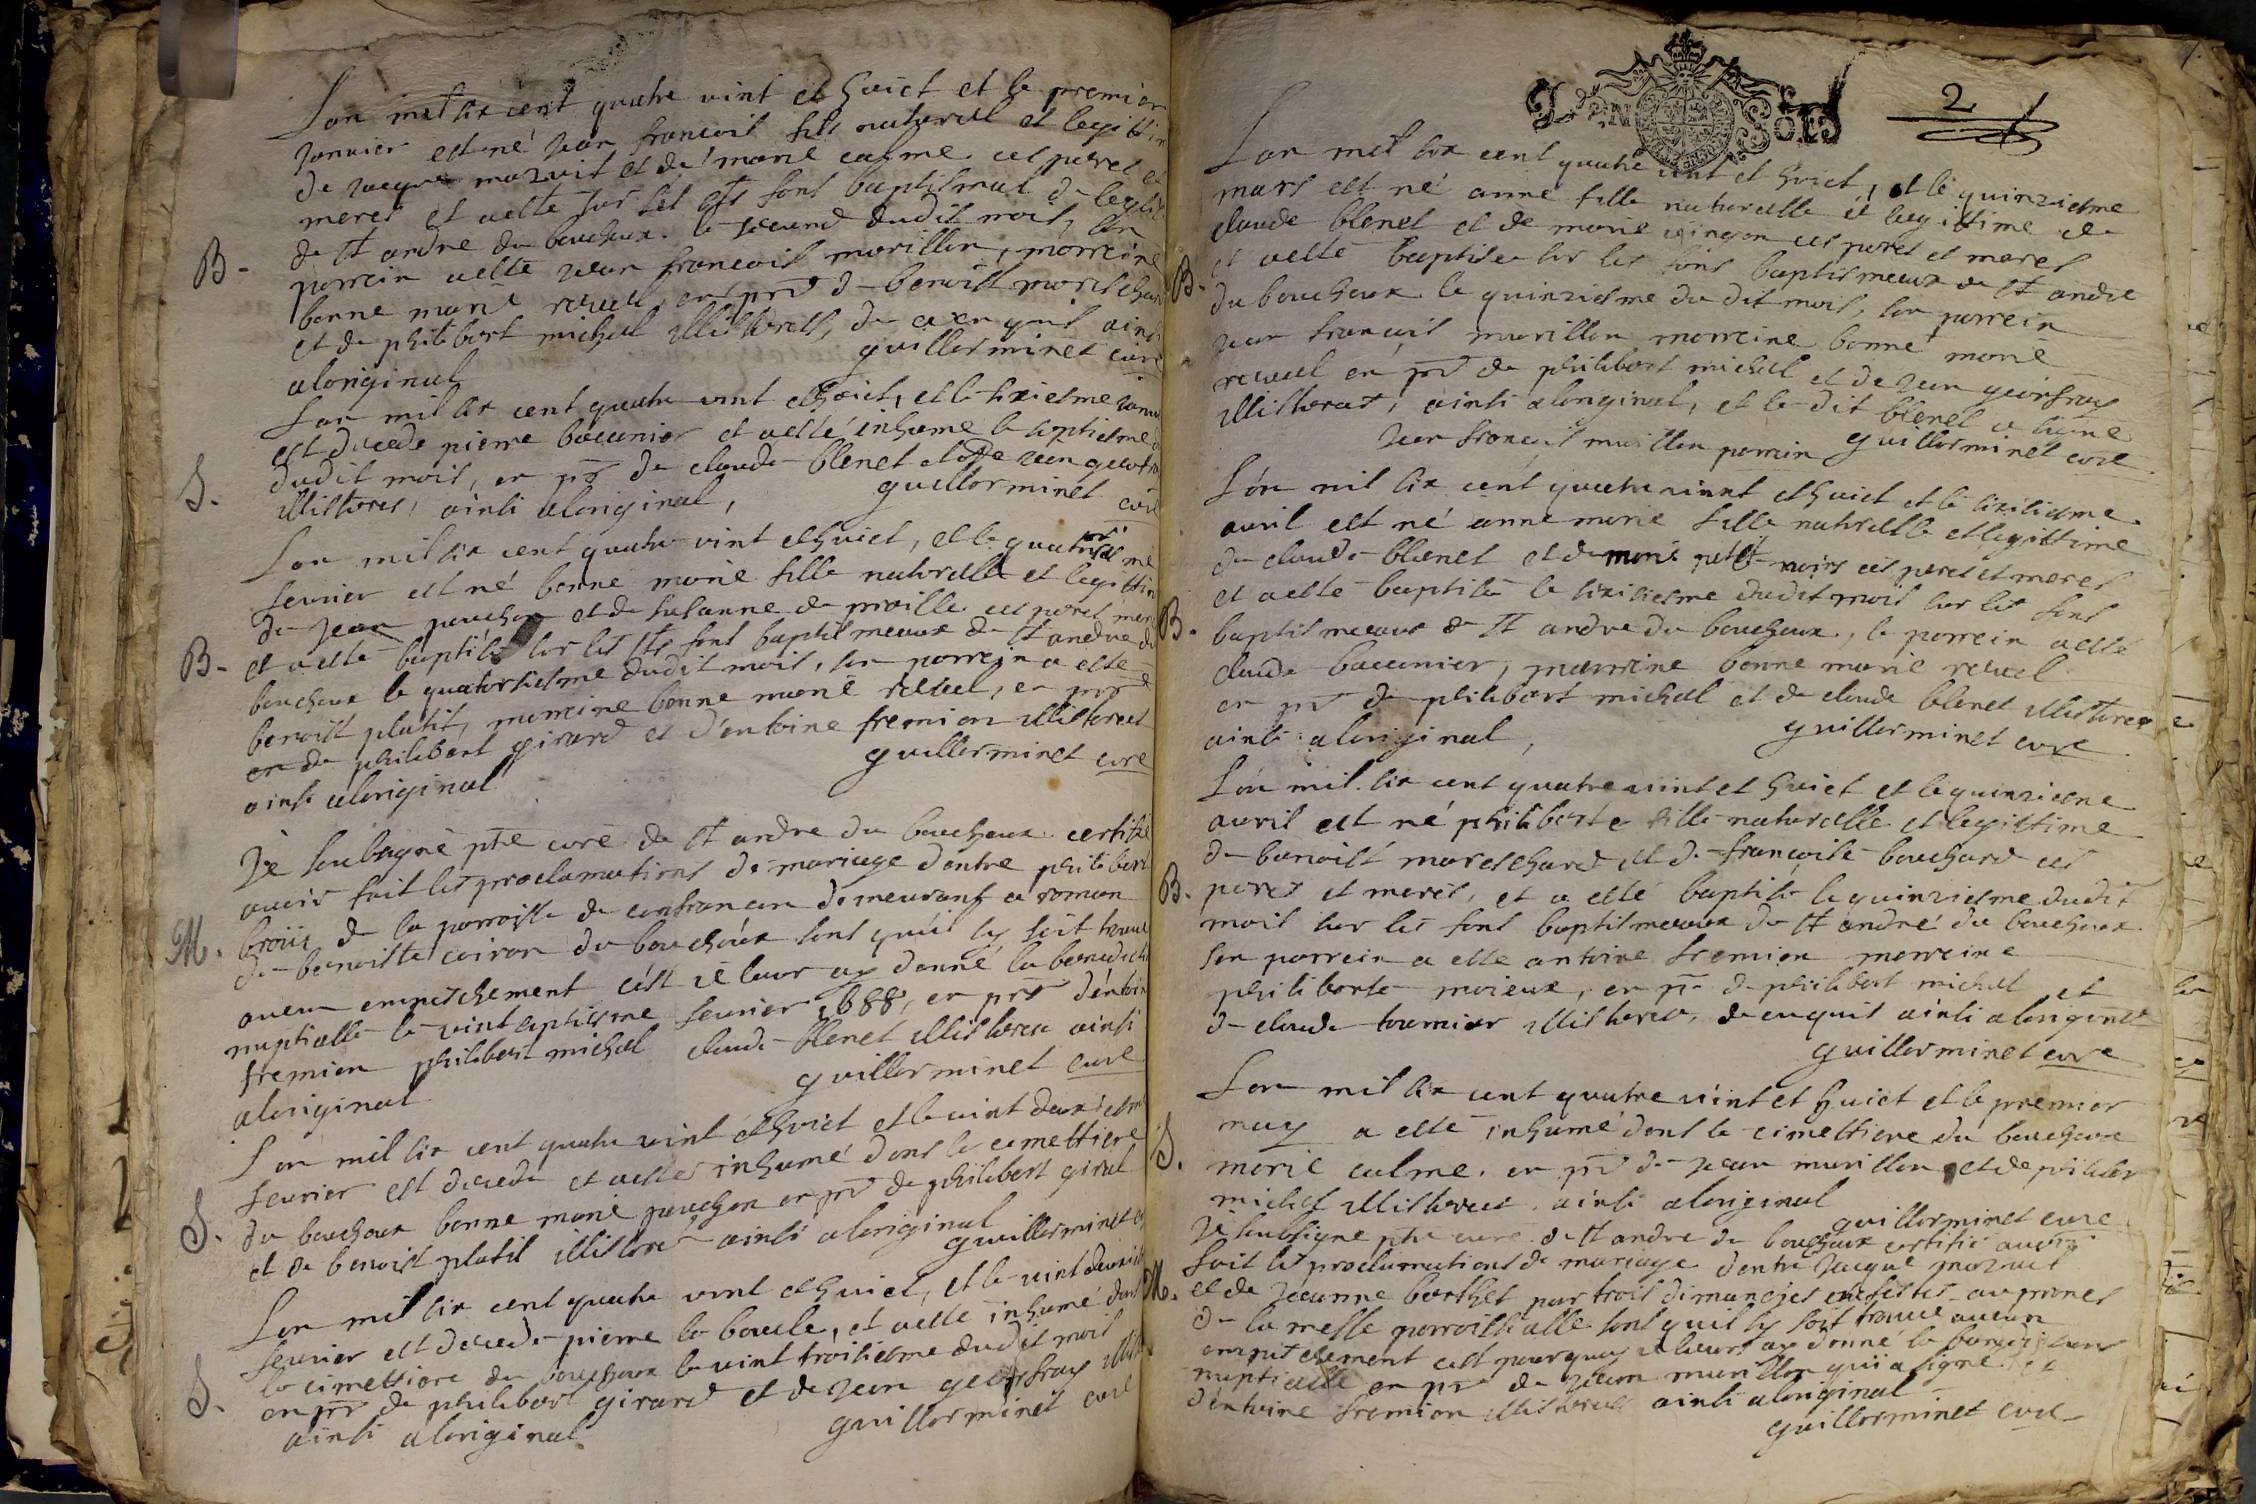 Lan mil six cent quatre vint et huict et le premier
Janvier est né Jean francois fils naturel et legittim
de Jacque mazuit et de marie calme ces peres et
meres et a esté sur les sts fons baptismal de leglis
de st andre du bouchoux le second dudit mois, son
B-
parrein a esté Jean francois marillon, marreine
bonne marie revel, en pnc de benoist mareschar
et de philibert michal illisteres, de ce en quis ainsi
aloriginal
guillerminet curé
Lan mil six cent quatre vint et huict, et le sixiesme Janv
est decedé pierre baconnier et a esté inhumé le septiesme
dudit mois, en pnc de claude blenet et de Jean geoffra
S.
illisteres, ainsi aloriginal,
guillerminet curé
Lan mil six cent quatre vint et huict, et le quatorsiesme
fevrier est né bonne marie fille naturelle et legittim
de Jean pouchon et de susanne de praille ces peres mere
et a esté baptisée sur les sts fons baptismeaux de st andre du
B-
bouchoux le quatorsiesme dudit mois, son parrein a esté
benoist platit, marreine bonne marie revel, en pnc
de philibert girard et d'entoine fremion illisteres
ainsi aloriginal
guillerminet curé
Je soubsigné ptre curé de st andre du bouchoux certifie
avoir fait les proclamations de mariage dentre philibert
broüis de la parroisse de confrancon demeurant a roman
M.
de benoiste coiron du bouchoux sans quil sy soit trouvé
aucun empeschement cest Je leur ay donné la benedicti
nuptialle le vint septisme fevrier 1688, en pnc dentoin
fremion philibert michal claude blenet illisteres ainsi
aloriginal
guillerminet curé
Lan mil six cent quatre vint et huict et le vint deuxiesme
fevrier est decedé et a esté inhumé dans le cemettiere
du bouchoux bonne marie pouchon en pnc de philibert giral
S.
et de benoist platil illisteré ainsi aloriginal
guillerminet c
Lan mil six cent quatre vint et huict, et le vint deuxies
fevrier est decedé pierre la boule, et a esté inhumé dans
le cimettiere du bouchoux le vint troisiesme dudit mois
S.
en pnc de philibert girard et de Jean geoffray illist
ainsi aloriginal
guillerminet curé
GEN SOLS
2
Lan mil six cent quatre vint et huict, et le quinziesme
mars est né anne fille naturelle et legittime de
claude blenet et de marie ces peres et meres
et a esté baptisée sur les fons baptismeaux de st andre
B.
du bouchoux le quinziesme du dit mois, son parrein
Jean francois marillon marreine bonne marie
revel en pnc de philibert michal et de Jean geoffray
illisteres, ainsi aloriginal, et le dit blenet a signé
Jean francois marillon parrein guillerminet curé
Lan mil six cent quatre vint et huict et le sixiesme
avril est né anne marie fille naturelle et legittime
de claude blenet et de marie petit ces peres et meres
et a esté baptisée le sixiesme dudit mois sur les fons
B.
baptismeaux de st andre du bouchoux, le parrein a esté
claude baconnier, marreine bonne marie revel
en pnc de philibert michal et de claude blenet illisteres
ainsi aloriginal,
guillerminet curé
Lan mil six cent quatre vint et huict et le quinziesme
avril est né philiberte fille naturelle et legittime
de benoist mareschard et de francoise bouchard ces
B.
peres et meres, et a esté baptisée le quinziesme dudit
mois sur les fons baptismeaux de st andré du bouchoux
son parrein a esté antoine fremion marreine
philiberte moieux, en pnc de philibert michal et
de claude tournier illisteres, de enquis ainsi aloriginal
guillerminet curé
Lan mil six cent quatre vint et huict et le premier
may a esté inhumé dans le cimettiere du bouchoux
S.
marie calme, en pnc de Jean marillon et de philiber
michal illisteres, ainsi aloriginal
guillerminet curé
Je soubsigné ptre curé de st andre du bouchoux certifie avoir
fait les proclamations de mariage dentre Jacque mazuit
M.
et de Jeanne berthet par trois dimanches et festes au prones
de la messe parroissialle sans quil sy soit trouvé aucun
empeschement cest pourquoy Je leurs ay donné la benediction
nuptialle en pnc de Jean marillon qui a signé et
dentoine fremion illisteres ainsi aloriginal
guillerminet curé